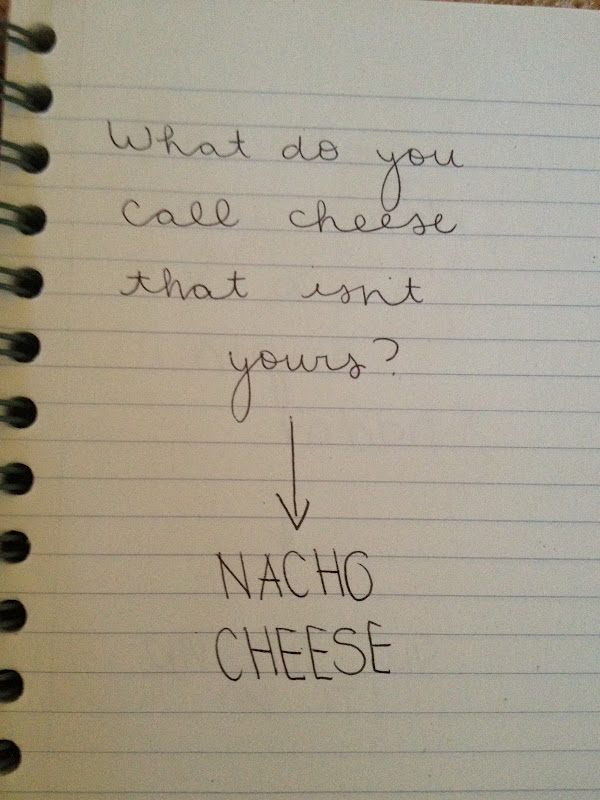 What do you
call cheese
that isn't
yours?
NACHO
CHEESE